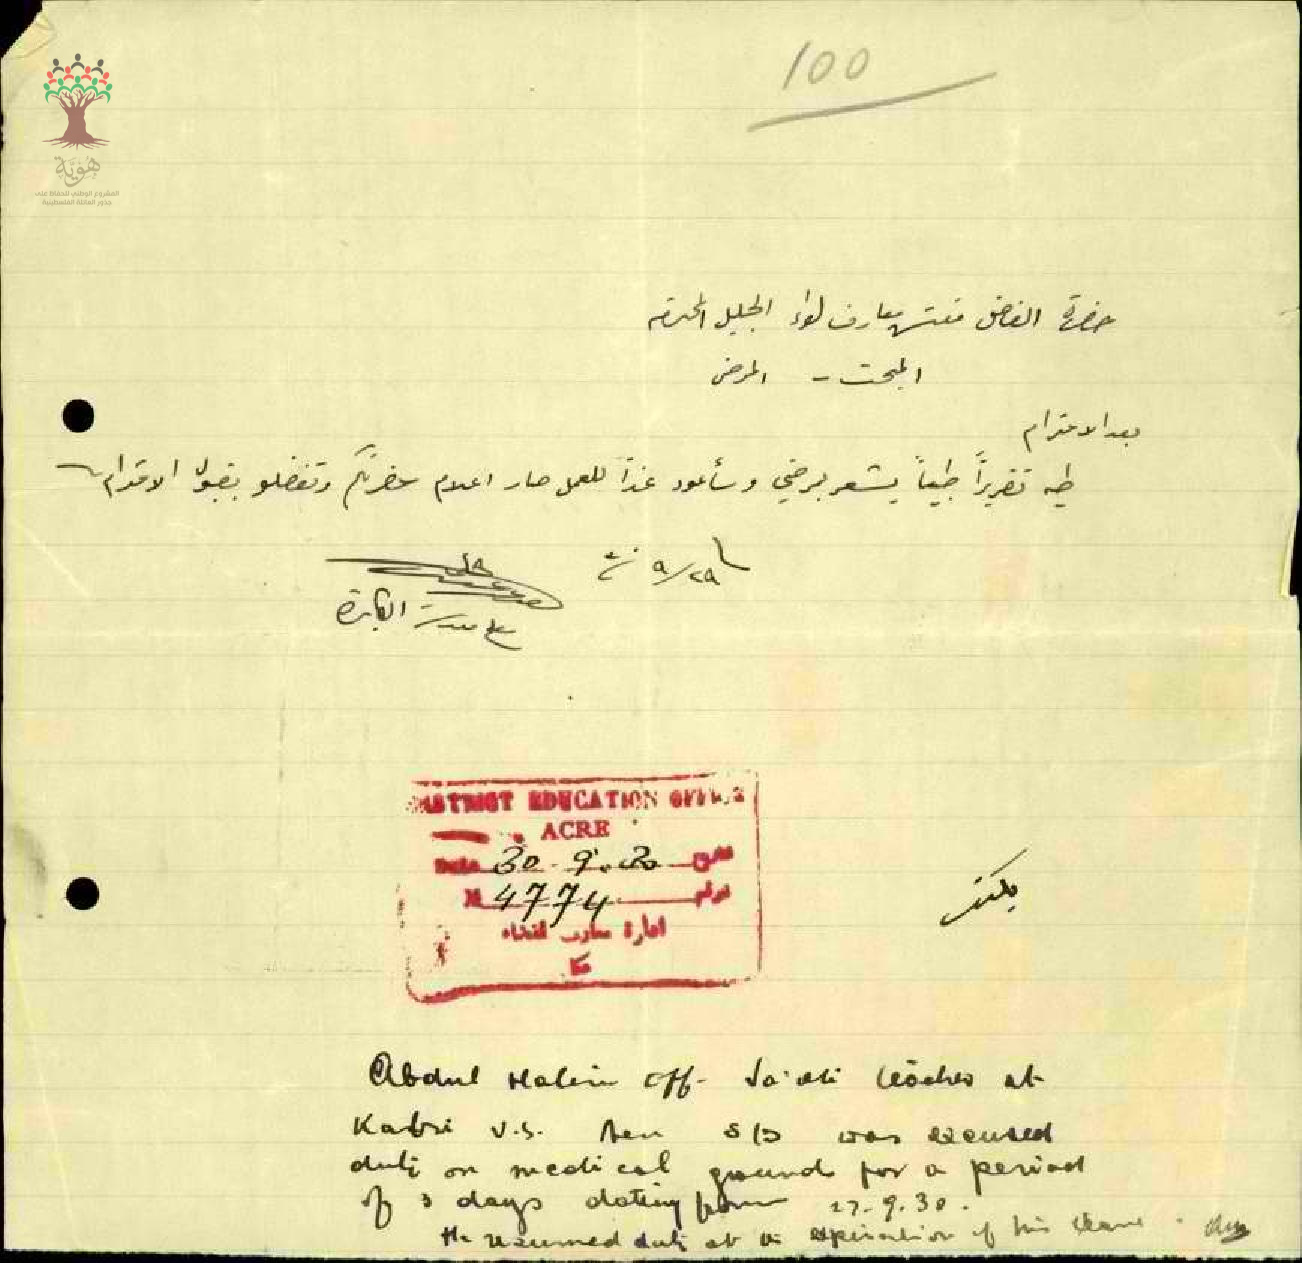 100
هوية
المشروع الوطني للحفاظ على
جذور العائلة الفلسطينية
حضرة الفاضل مفتش معارف لواء الجليل المحترم
المبحث - المرض
بعد الاحترام
طيه تقريراً طبياً يشعر بمرضي وسأعود غداً للعمل صار اعلام حضرتكم وتفضلو بقبول الاحترام
٢٩/٩
مدرسة الكابرة
DISTRICT EDUCATION OFFICE
ACRE
Date 30-9-30
№ 4774 نمرو
ادارة معارف قضاء
عكا
Abdul Halim Eff. teacher at
Kabri V.S. Acre S/D was excused
duty on medical grounds for a period
of 3 days dating from 27-9-30.
He resumed duty at the expiration of his leave.